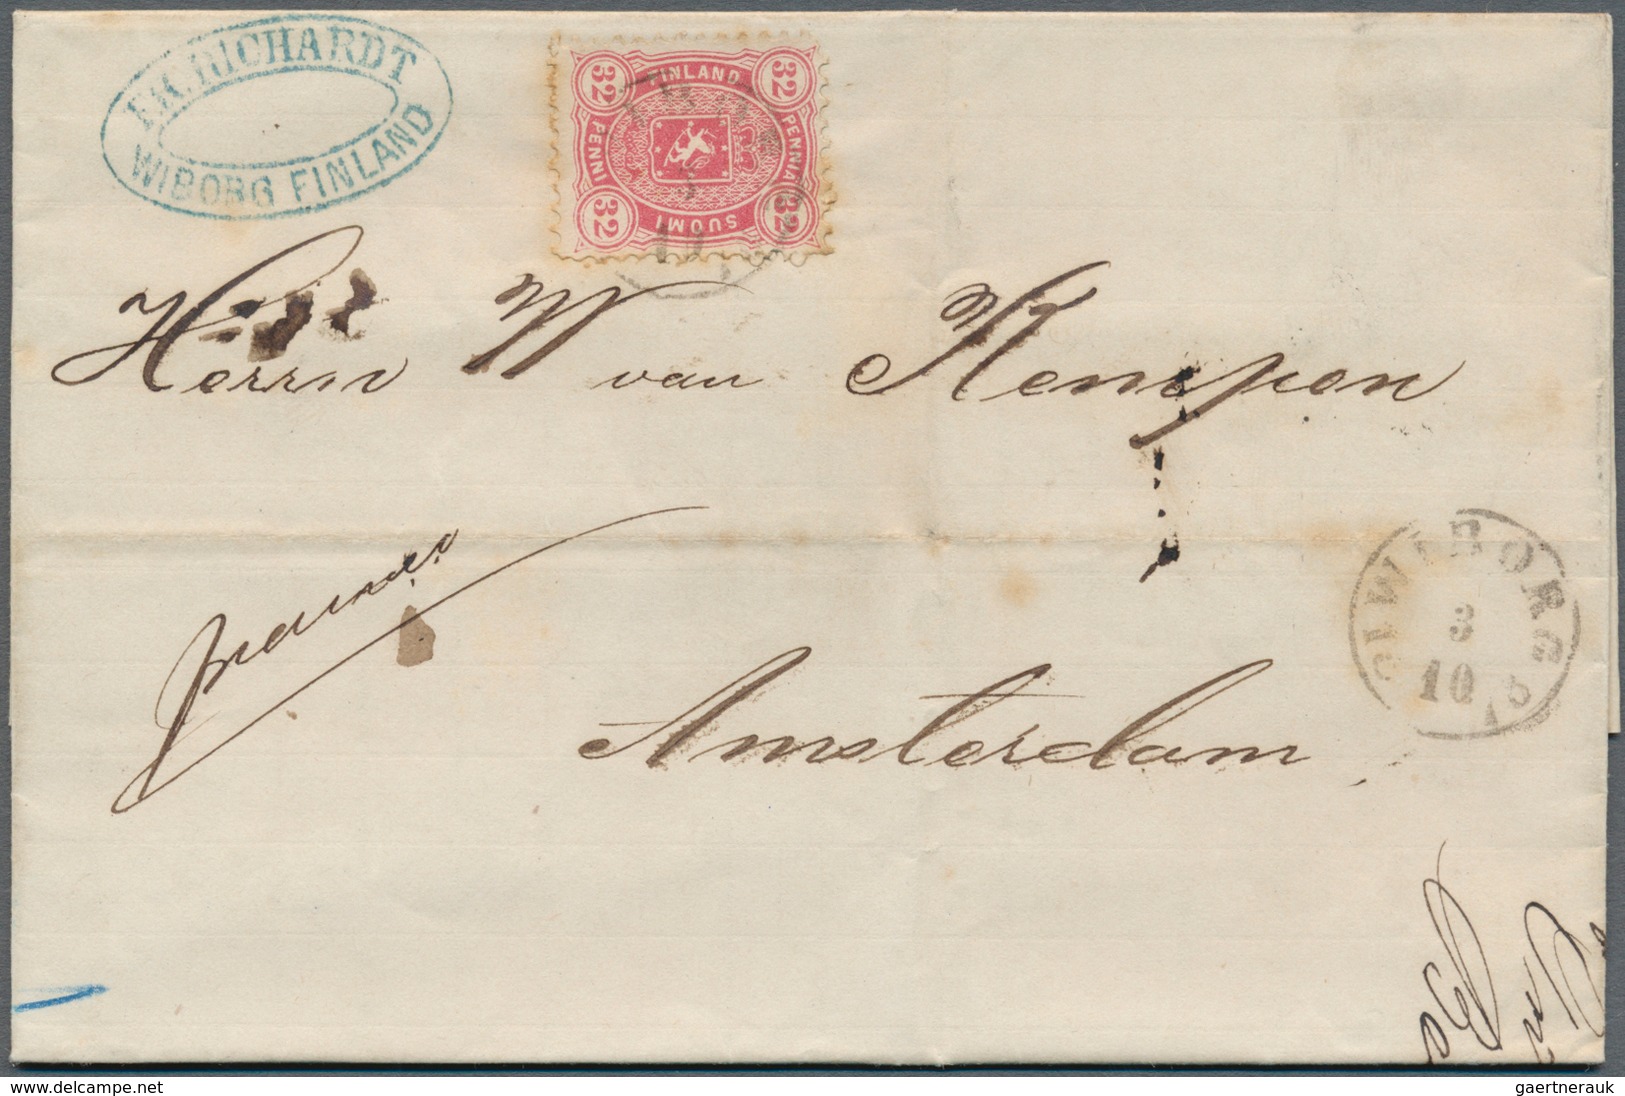 FK. RICHARDT
WIBORG FINLAND
32 FINLAND 32
PENNI PENNIÄ
32 SUOMI 32
3
10
Herrn W van Kempen
franco
WIBORG
3
10
Amsterdam
delcampe.net
gaertnerauk